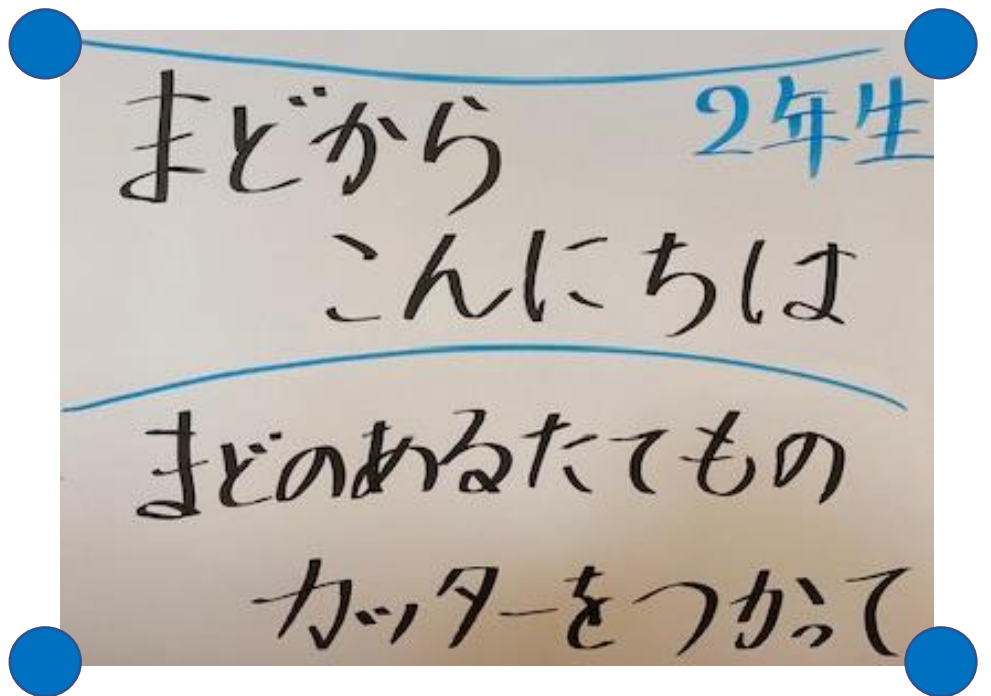 まどから
2年生
こんにちは
まどのあるたてもの
カッターをつかって